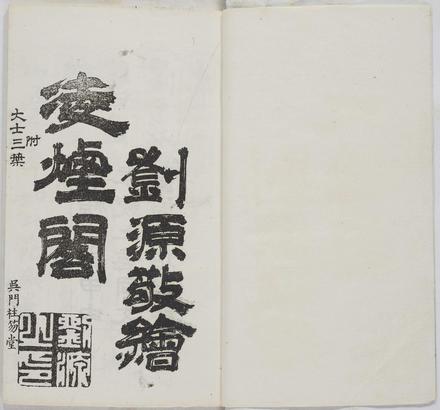 劉源敬繪
凌煙閣
附
大士三葉
吳門柱笏堂
劉源
之印